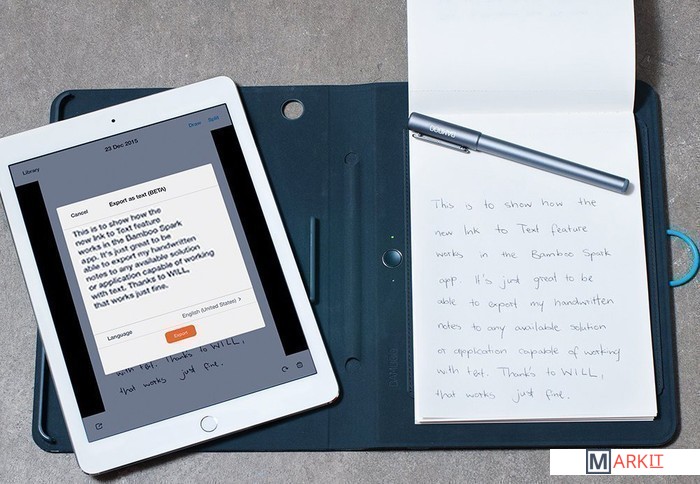 Library
23 Dec 2015
Draw Split
Cancel
Export as text (BETA)
This is to show how the
new Ink to Text feature
works in the Bamboo Spark
app. It's just great to be
able to export my handwritten
notes to any available solution
or application capable of working
with text. Thanks to WILL,
that works just fine.
Language
English (United States) >
Export
with text. Thanks to WILL,
that works just fine.
BAMBOO
This is to show how the
new Ink to Text feature
works in the Bamboo Spark
app. It's just great to be
able to export my handwritten
notes to any available solution
or application capable of working
with text. Thanks to WILL,
that works just fine.
MARKIT